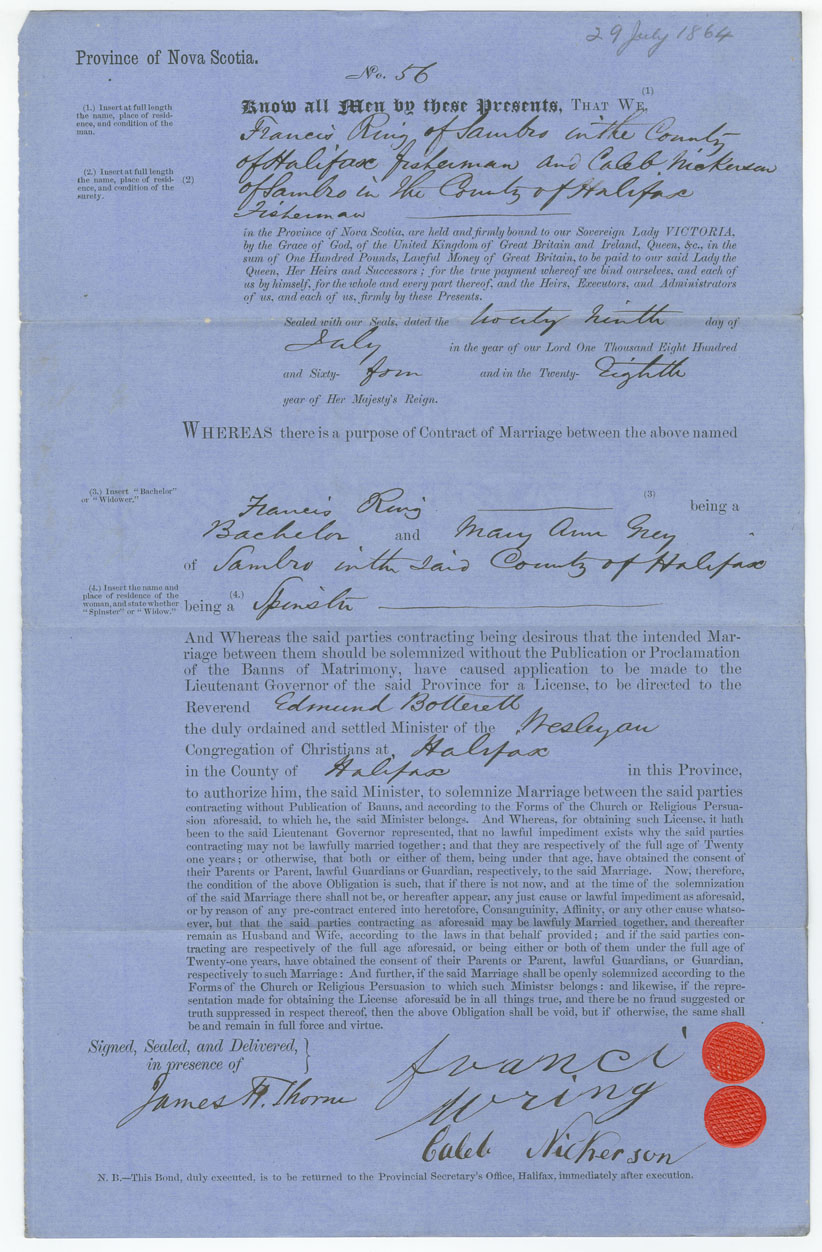 29 July 1864
Province of Nova Scotia.
No. 56
(1)
Know all Men by these Presents, THAT WE,
(1.) Insert at full length
the name, place of resid-
ence, and condition of the
man.
Francis Ring of Sambro in the County
of Halifax fisherman and Caleb Nickerson
(2.) Insert at full length
the name, place of resid-
ence, and condition of the
surety.
(2)
of Sambro in the County of Halifax
Fisherman
in the Province of Nova Scotia, are held and firmly bound to our Sovereign Lady VICTORIA,
by the Grace of God, of the United Kingdom of Great Britain and Ireland, Queen, &c., in the
sum of One Hundred Pounds, Lawful Money of Great Britain, to be paid to our said Lady the
Queen, Her Heirs and Successors ; for the true payment whereof we bind ourselves, and each of
us by himself, for the whole and every part thereof, and the Heirs, Executors, and Administrators
of us, and each of us, firmly by these Presents.
Sealed with our Seals, dated the twenty Ninth day of
July in the year of our Lord One Thousand Eight Hundred
and Sixty- four and in the Twenty- Eighth
year of Her Majesty's Reign.
WHEREAS there is a purpose of Contract of Marriage between the above named
(3.) Insert "Bachelor"
or "Widower."
Francis Ring (3) being a
Bachelor and Mary Ann Grey
of Sambro in the said County of Halifax
(4.) Insert the name and
place of residence of the
woman, and state whether
"Spinster" or "Widow."
being a (4.) Spinster
And Whereas the said parties contracting being desirous that the intended Mar-
riage between them should be solemnized without the Publication or Proclamation
of the Banns of Matrimony, have caused application to be made to the
Lieutenant Governor of the said Province for a License, to be directed to the
Reverend Edmund Botterell
the duly ordained and settled Minister of the Wesleyan
Congregation of Christians at Halifax
in the County of Halifax in this Province,
to authorize him, the said Minister, to solemnize Marriage between the said parties
contracting without Publication of Banns, and according to the Forms of the Church or Religious Persua-
sion aforesaid, to which he, the said Minister belongs. And Whereas, for obtaining such License, it hath
been to the said Lieutenant Governor represented, that no lawful impediment exists why the said parties
contracting may not be lawfully married together ; and that they are respectively of the full age of Twenty
one years ; or otherwise, that both or either of them, being under that age, have obtained the consent of
their Parents or Parent, lawful Guardians or Guardian, respectively, to the said Marriage. Now, therefore,
the condition of the above Obligation is such, that if there is not now, and at the time of the solemnization
of the said Marriage there shall not be, or hereafter appear, any just cause or lawful impediment as aforesaid,
or by reason of any pre-contract entered into heretofore, Consanguinity, Affinity, or any other cause whatso-
ever, but that the said parties contracting as aforesaid may be lawfuly Married together, and thereafter
remain as Husband and Wife, according to the laws in that behalf provided ; and if the said parties con-
tracting are respectively of the full age aforesaid, or being either or both of them under the full age of
Twenty-one years, have obtained the consent of their Parents or Parent, lawful Guardians, or Guardian,
respectively to such Marriage : And further, if the said Marriage shall be openly solemnized according to the
Forms of the Church or Religious Persuasion to which such Ministsr belongs : and likewise, if the repre-
sentation made for obtaining the License aforesaid be in all things true, and there be no fraud suggested or
truth suppressed in respect thereof, then the above Obligation shall be void, but if otherwise, the same shall
be and remain in full force and virtue.
Signed, Sealed, and Delivered,
in presence of
James H. Thorne
Franci
Wring
Caleb Nickerson
N. B.—This Bond, duly executed, is to be returned to the Provincial Secretary's Office, Halifax, immediately after execution.